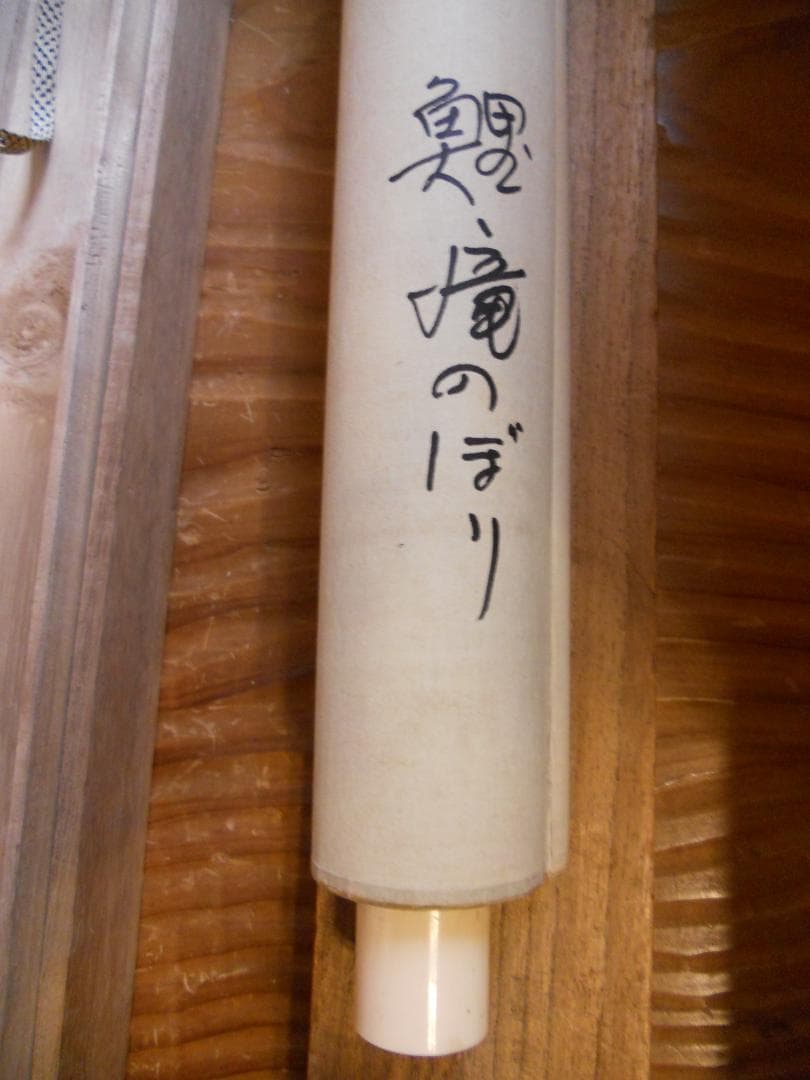 鯉、滝のぼり